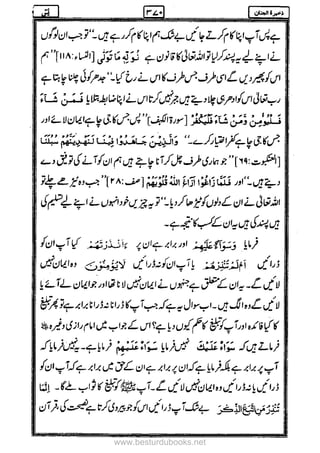 ذخیرۃ الجنان ۳۷۰ یٰسٓ
آپس آپ اپنا کام کرتے جائیں بے شک ہم اپنا کام کر رہے ہیں۔“ تو جب ان لوگوں
نے اپنے لیے یہ پسند کر لیا تو اللہ تعالیٰ کا قانون ہے نُوَلِّہٖ مَا تَوَلّٰی [النساء: ۱۱۸] ”ہم
اس کو پھیر دیں گے اسی طرف جس طرف کا اس نے رخ کیا۔“ جدھر کوئی چلنا چاہتا ہے
رب تعالیٰ اس کو ادھر ہی چلا دیتے ہیں جبر نہیں کرتا اس نے اپنا ضابطہ بتلایا فَمَنْ شَآءَ
فَلْیُؤْمِنْ وَّمَنْ شَآءَ فَلْیَکْفُرْ [سورۃ الکہف] ”پس جس کا جی چاہے ایمان لائے اور
جس کا جی چاہے کفر اختیار کرے۔“ وَالَّذِیْنَ جَاھَدُوْا فِیْنَا لَنَھْدِیَنَّھُمْ سُبُلَنَا
[العنکبوت: ۶۹] ”جو ہماری طرف چل کر آنا چاہتے ہیں ہم ان کو آنے کی توفیق دے
دیتے ہیں۔“ اور فَلَمَّا زَاغُوْٓا اَزَاغَ اللّٰہُ قُلُوْبَھُمْ [صف: ۲۸] ”جب وہ ٹیڑھے چلے تو
اللہ تعالیٰ نے ان کے دلوں کو ٹیڑھا کر دیا۔“ تو یہ چیزیں خود انہوں نے اپنے لیے تسلیم کی
ہیں پسند کی ہیں یہ ان کے کسب کا نتیجہ ہے۔
فرمایا وَسَوَآءٌ عَلَیْھِمْ اور برابر ہے ان پر ءَاَنْذَرْتَھُمْ کیا آپ ان کو
ڈرائیں اَمْ لَمْ تُنْذِرْھُمْ یا آپ ان کو نہ ڈرائیں لَا یُؤْمِنُوْنَ وہ ایمان نہیں
لائیں گے۔ یہ ان کے متعلق ہے جنہوں نے ایمان نہیں لانا تھا اور جو ایمان لے آئے یا
لائیں گے وہ الگ ہیں۔ اب سوال یہ ہے کہ جب آپ کا ڈرانا نہ ڈرانا برابر ہے تو پھر تبلیغ
کا کیا فائدہ اور آپ کو تبلیغ کا حکم کیوں دیا ہے؟ اس کے جواب میں امام رازی وغیرہ
فرماتے ہیں کہ سَوَآءٌ عَلَیْکَ نہیں فرمایا سَوَآءٌ عَلَیْھِمْ فرمایا ہے۔ یہ نہیں فرمایا کہ
آپ پر برابر ہے بلکہ فرمایا ہے کہ ان پر برابر ہے ان کے حق میں برابر ہے کہ آپ ان کو
ڈرائیں یا نہ ڈرائیں وہ ایمان نہیں لائیں گے۔ آپ ﷺ کو تبلیغ کا ثواب ملے گا۔ اِنَّمَا
تُنْذِرُ مَنِ اتَّبَعَ الذِّکْرَ بے شک آپ ڈرائیں اس کو جو پیروی کرتا ہے نصیحت کی قرآن
www.besturdubooks.net